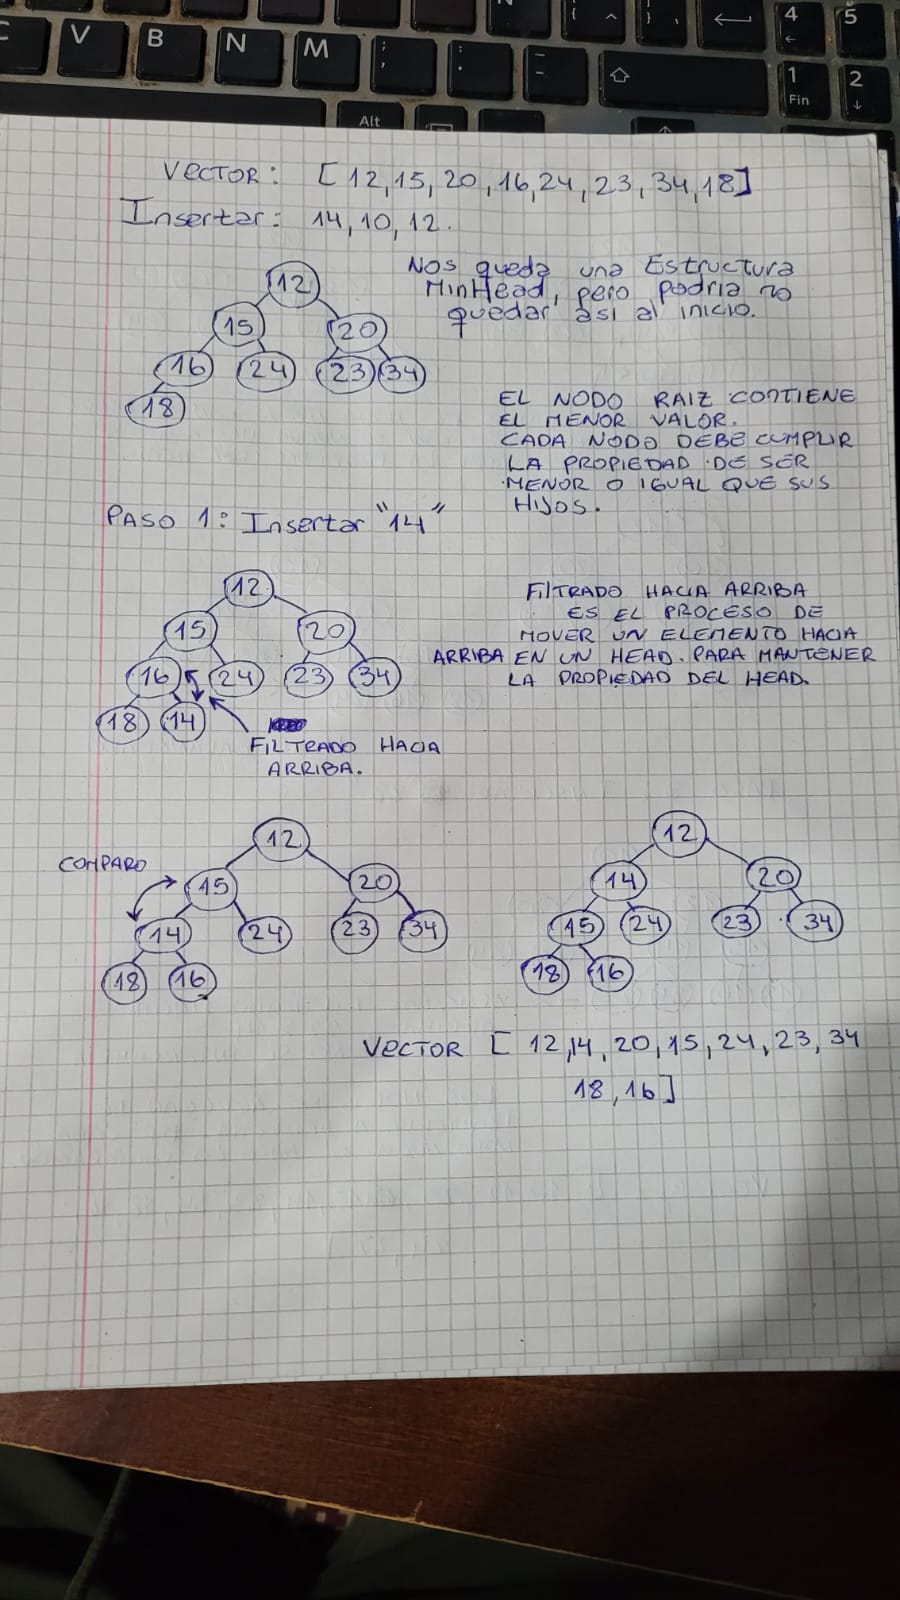 C V B N M ; , : . _ - { ^ } , 4 5
Alt 1 Fin 2
VECTOR: [12,15,20,16,24,23,34,18]
Insertar: 14,10,12.
Nos queda una Estructura
MinHead, pero podria no
quedar asi al inicio.
12
15 20
16 24 23 34
18
EL NODO RAIZ CONTIENE
EL MENOR VALOR.
CADA NODO DEBE CUMPLIR
LA PROPIEDAD DE SER
MENOR O IGUAL QUE SUS
HIJOS.
PASO 1: Insertar "14"
12
15 20
16 24 23 34
18 14
FILTRADO HACIA
ARRIBA.
FILTRADO HACIA ARRIBA
ES EL PROCESO DE
MOVER UN ELEMENTO HACIA
ARRIBA EN UN HEAD. PARA MANTENER
LA PROPIEDAD DEL HEAD.
COMPARO
12
15 20
14 24 23 34
18 16
12
14 20
15 24 23 34
18 16
VECTOR [12,14,20,15,24,23,34
18,16]